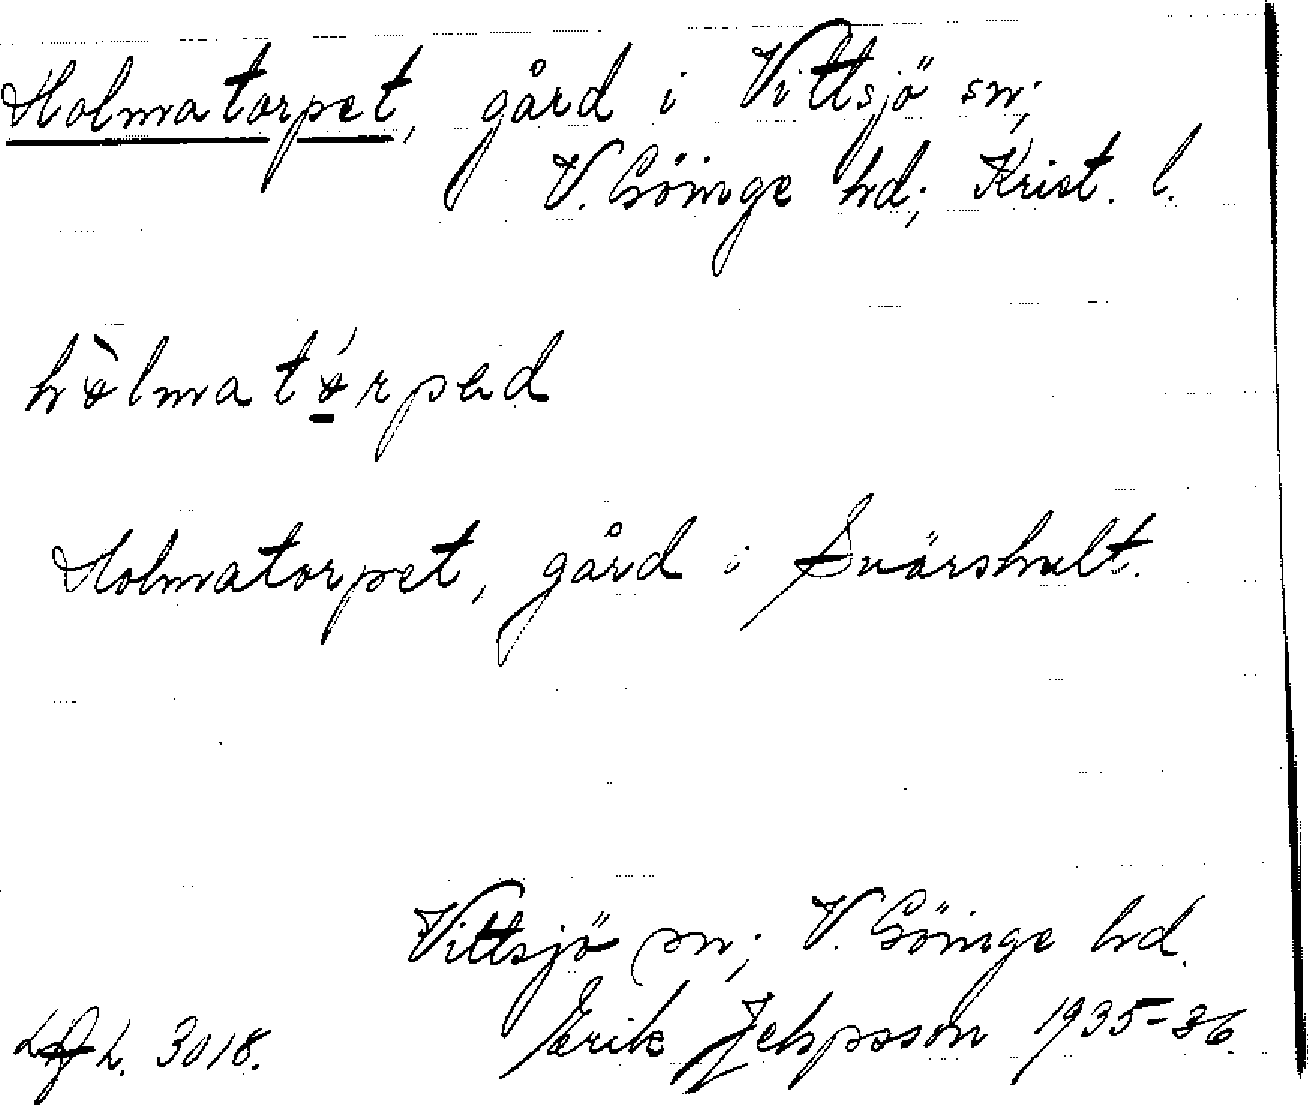 Holmatorpet, gård i Vittsjö sn;
V. Göinge hd; Krist. l.
hòlmatórpəd
Holmatorpet, gård i Svärshult.
Vittsjö sn; V. Göinge hd.
Erik Jeppsson 1935-36.
3018.